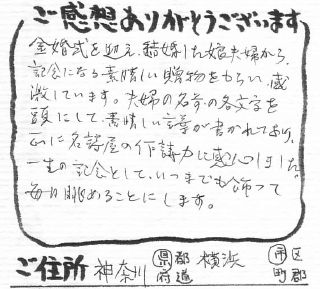 ご感想ありがとうございます
金婚式を迎え、結婚した娘夫婦から、
記念になる素晴しい贈物をもらい、感
激しています。夫婦の名前の各文字を
頭にして、素晴しい言葉が書かれており、
正に名詩屋の作詩力に感心しました。
一生の記念として、いつまでも飾って
毎日眺めることにします。
ご住所 神奈川 県都府道 横浜 市区町郡